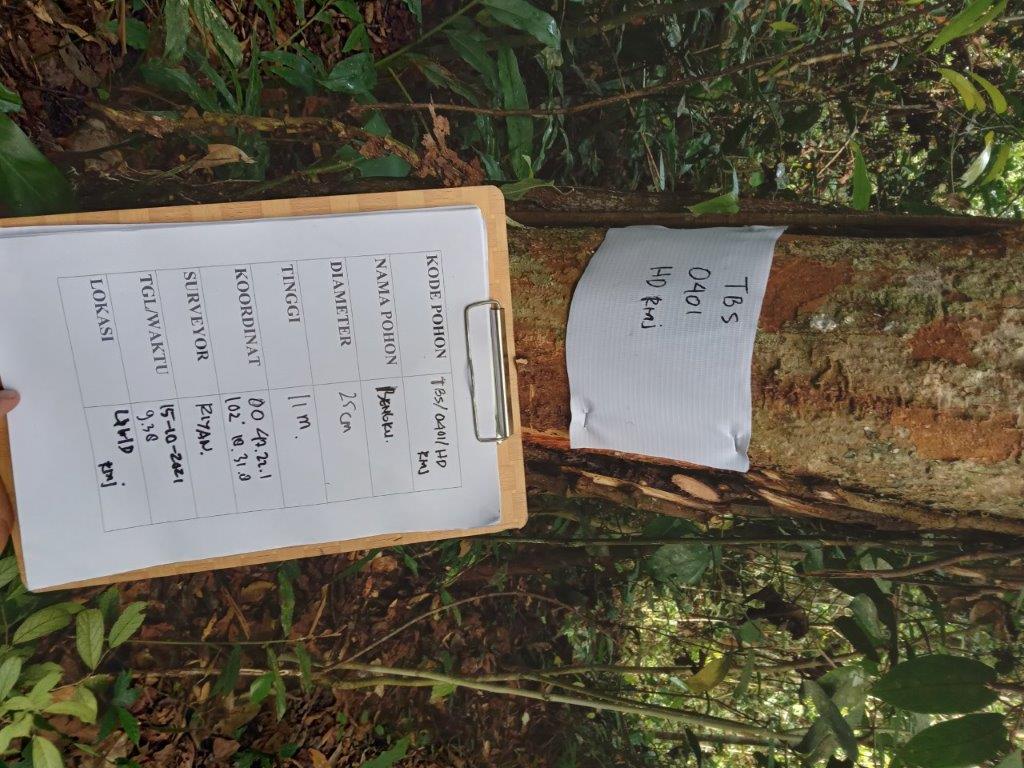 TBS
0401
HD RMJ
KODE POHON TBS/0401/HD
RMJ
NAMA POHON BENGKU.
DIAMETER 25 cm
TINGGI 11 m.
KOORDINAT 00
102°
SURVEYOR RIYAN.
TGL/WAKTU 15-10-2021
9.30
LOKASI
RMJ